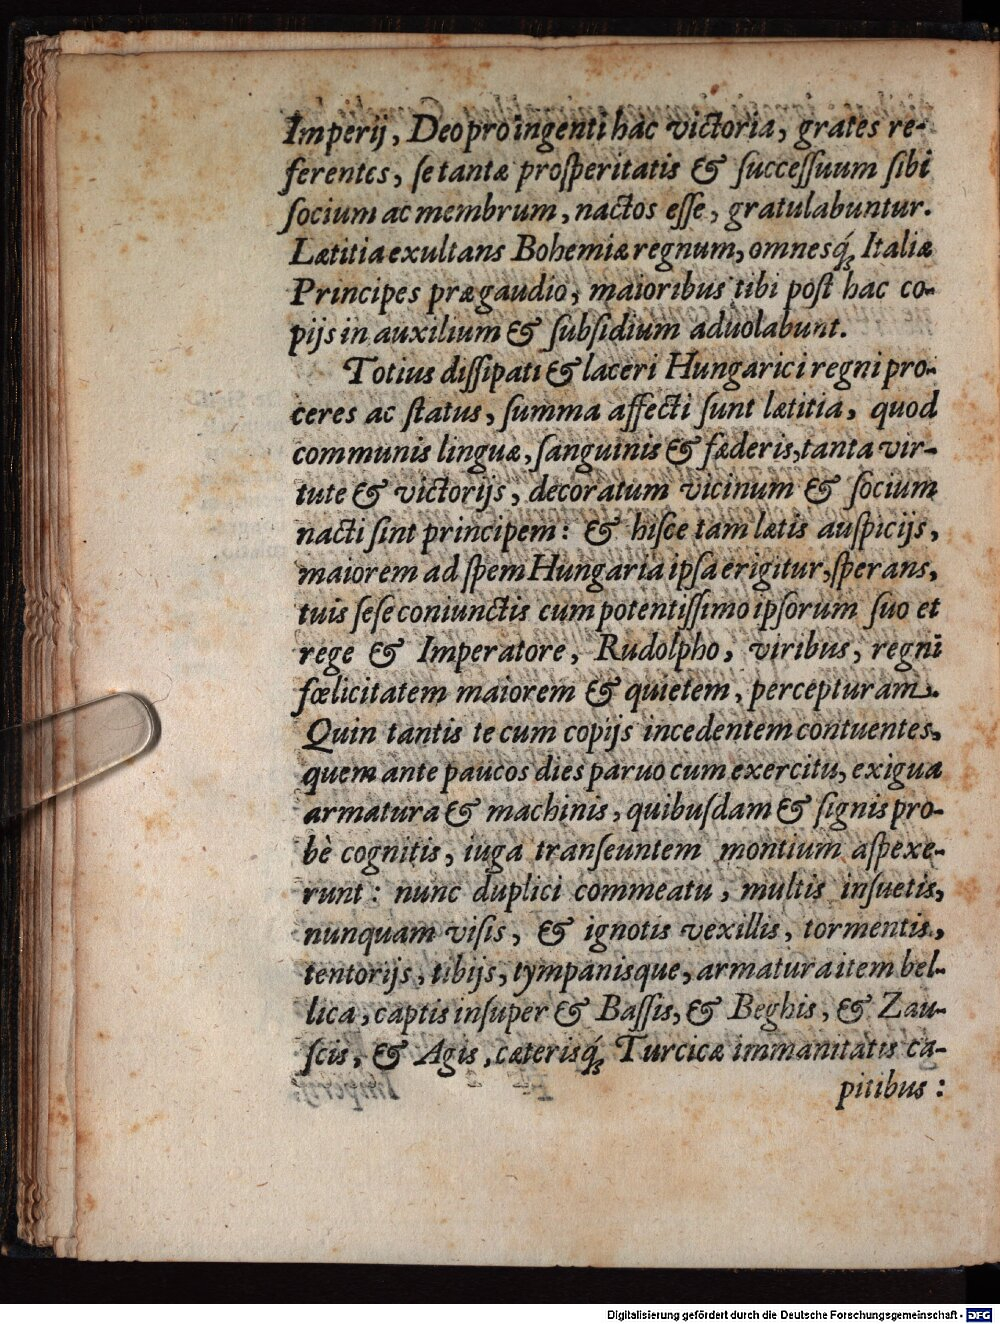 Imperij, Deo pro ingenti hac victoria, grates re-
ferentes, se tantæ prosperitatis & successuum sibi
socium ac membrum, nactos esse, gratulabuntur.
Lætitia exultans Bohemiæ regnum, omnesq́; Italiæ
Principes præ gaudio, maioribus tibi post hac co-
pijs in auxilium & subsidium aduolabunt.
Totius dissipati & laceri Hungarici regni pro-
ceres ac status, summa affecti sunt lætitia, quod
communis linguæ, sanguinis & fæderis, tanta vir-
tute & victorijs, decoratum vicinum & socium
nacti sint principem: & hisce tam lætis auspicijs,
maiorem ad spem Hungaria ipsa erigitur, sperans,
tuis sese coniunctis cum potentissimo ipsorum suo et
rege & Imperatore, Rudolpho, viribus, regni
fœlicitatem maiorem & quietem, percepturam.
Quin tantis tecum copijs incedentem contuentes,
quem ante paucos dies paruo cum exercitu, exigua
armatura & machinis, quibusdam & signis pro-
bè cognitis, iuga transeuntem montium aspexe-
runt: nunc duplici commeatu, multis insuetis,
nunquam visis, & ignotis vexillis, tormentis,
tentorijs, tibijs, tympanisque, armatura item bel-
lica, captis insuper & Bassis, & Beghis, & Zau-
scis, & Agis, cæterisq́; Turcicæ immanitatis ca-
pitibus:
Digitalisierung gefördert durch die Deutsche Forschungsgemeinschaft - DFG